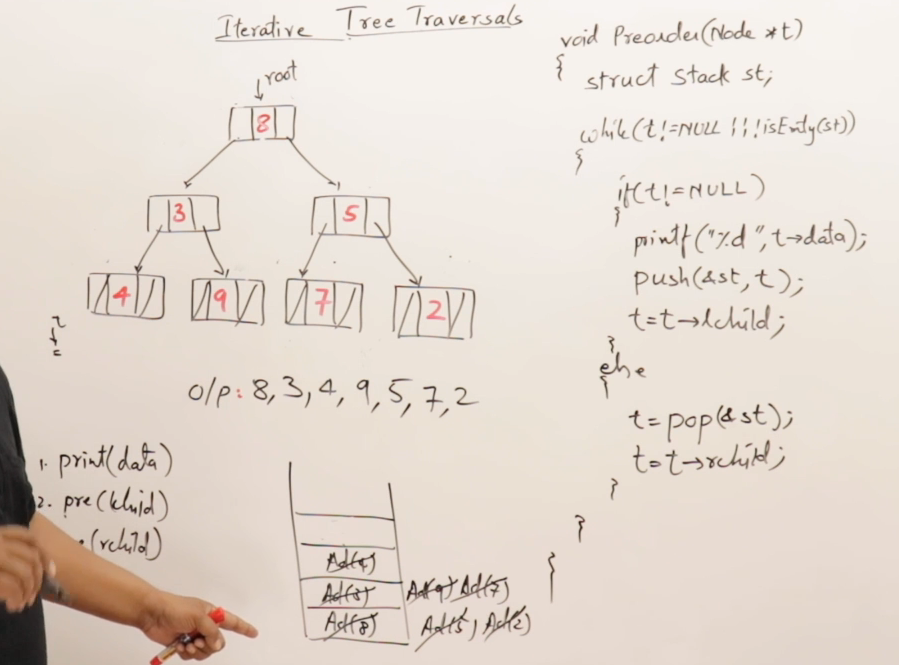 Iterative Tree Traversals
root
8
3 5
4 9 7 2
O/P: 8, 3, 4, 9, 5, 7, 2
1. print(data)
2. pre(lchild)
(rchild)
Ad(4)
Ad(3) Ad(9) Ad(7)
Ad(8) Ad(5), Ad(2)
void Preorder(Node *t)
{
struct Stack st;
while(t!=NULL || !isEmty(st))
{
if(t!=NULL)
{
printf("%d", t→data);
push(&st, t);
t=t→lchild;
}
else
{
t=pop(&st);
t=t→rchild;
}
}
}